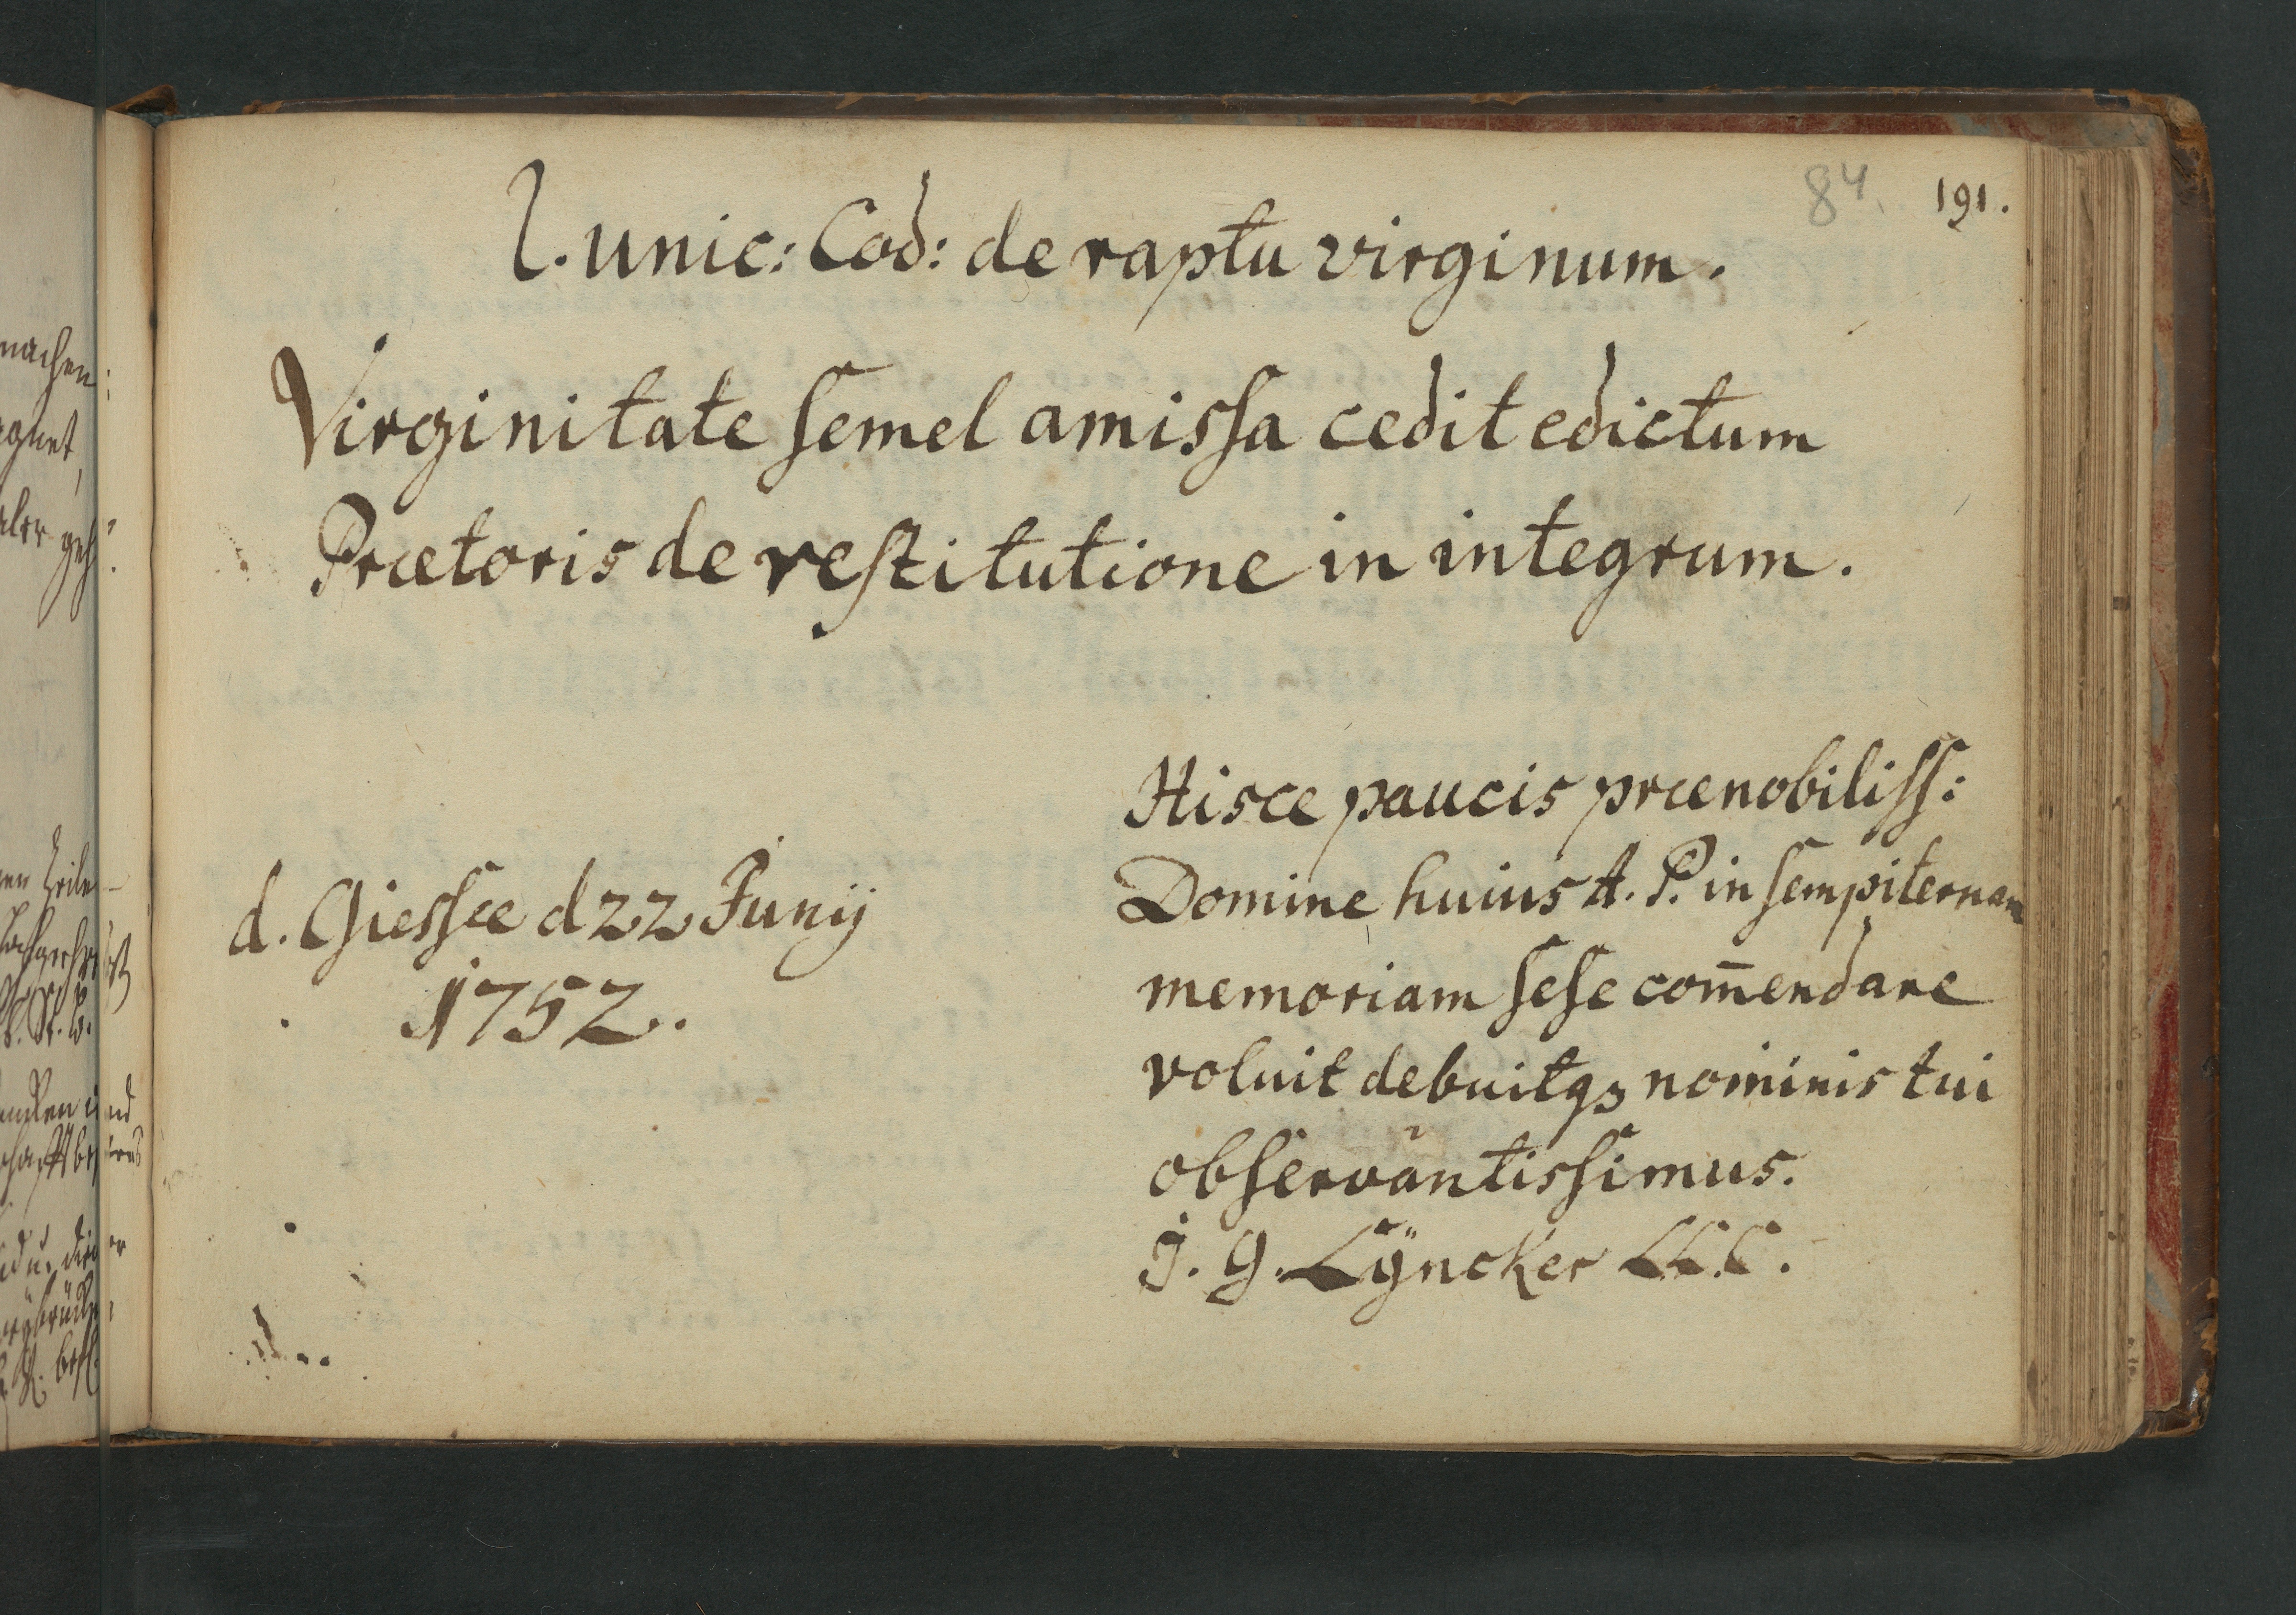 84. 191.
l. unic: Cod: de raptu virginum.
Virginitate ſemel amisſa cedit edictum
Prætoris de reſtitutione in integrum.
Hisce paucis prænobiliſſ:
Domine huius A. P. in ſempiternam
memoriam ſeſe com̄endare
voluit debuitqꝫ nominis tui
obſervantisſimus.
J. G. Lÿncker LL.C.
d. Giesſæ d 22 Junij
1752.